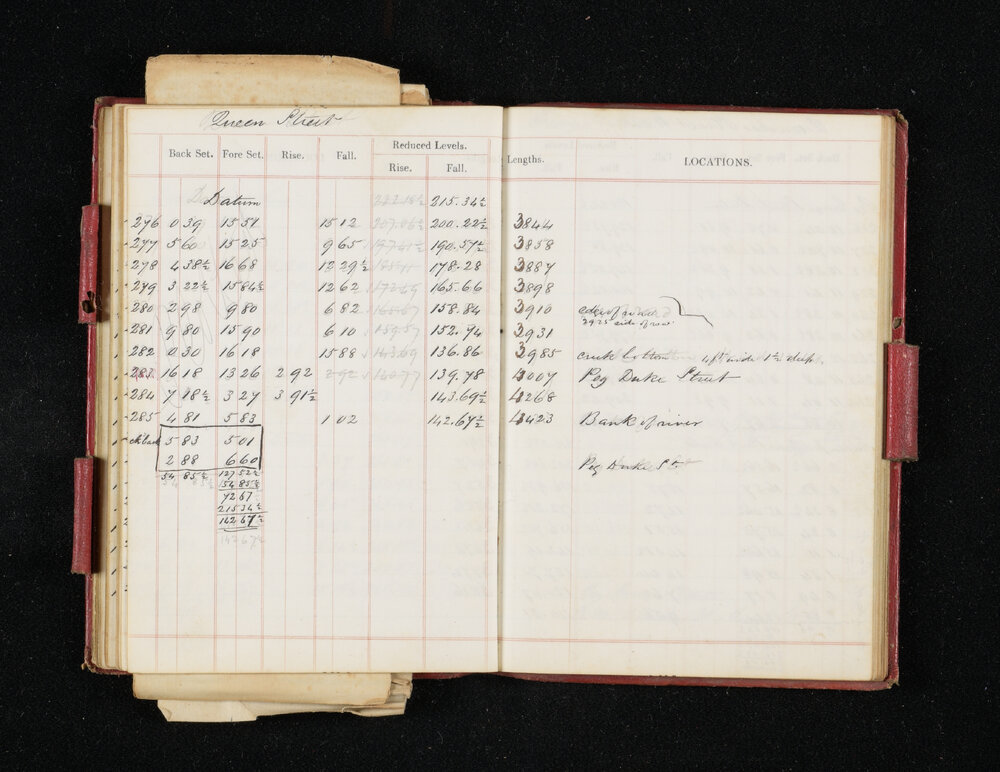 Queen Street
Back Set. Fore Set. Rise. Fall. Reduced Levels. Rise. Fall. Lengths. LOCATIONS.
Datum 215.34½
276 0 39 15 51 15 12 200.22½ 3844
277 5 60 15 25 9 65 190.57½ 3858
278 4 38½ 16 68 12 29½ 178.28 3887
279 3 22½ 15 84½ 12 62 165.66 3898
280 2 98 9 80 6 82 158.84 3910
281 9 80 15 90 6 10 152.74 3931 3925 side of
282 0 30 16 18 15 88 136.86 3985 creek bottom 4 ft wide 1½ deep
283 16 18 13 26 2 92 2 92 140.77 139.78 4007 Peg Duke Street
284 7 18½ 3 27 3 91½ 143.69½ 4268
285 4 81 5 83 1 02 142.67½ 4423 Bank of river
5 83 5 01
2 88 6 60 Peg Duke St
54 85½ 127 52½
54 85½
72 67
215 34½
142 67½
142 67½